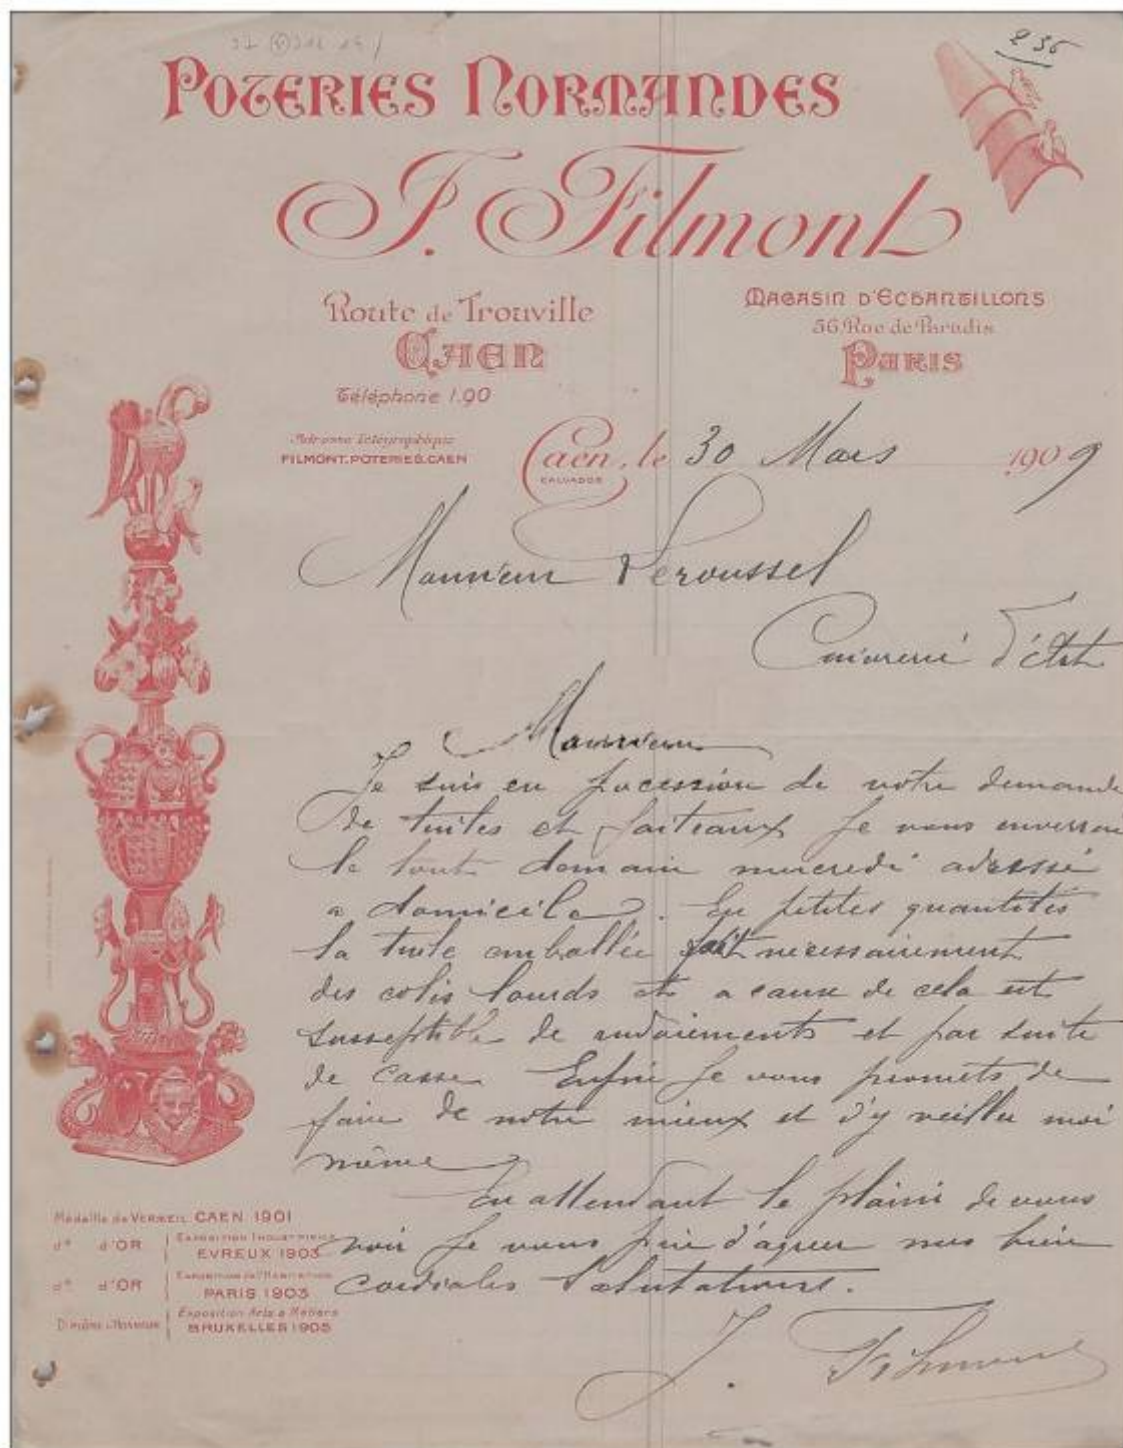 236
POTERIES NORMANDES
J. Filmont
Route de Trouville
CAEN
Téléphone 1.90
MAGASIN D'ECHANTILLONS
56 Rue de Paradis
PARIS
Adresse Télégraphique
FILMONT.POTERIES.CAEN
Caen, le 30 Mars 1909
CALVADOS
Monsieur Leroussel
d'état
Monsieur
Je suis en pocession de votre demande
de tuiles et faiteaux je vous enverrai
le tout demain mercredi adressé
a domicile. En petites quantités
la tuile emballée fait necessairement
des colis lourds et a cause de cela est
susseptible de rudoiements et par suite
de casse Enfin je vous promets de
faire de notre mieux et d'y veiller moi
même
En attendant le plaisir de vous
voir je vous prie d'agreer mes bien
cordiales salutations.
J. Filmont
Médaille de VERMEIL CAEN 1901
do d'OR EXPOSITION INDUSTRIELLE
EVREUX 1903
do d'OR EXPOSITION de l'HABITATION
PARIS 1903
DIPLÔME d'HONNEUR Exposition Arts & Métiers
BRUXELLES 1905